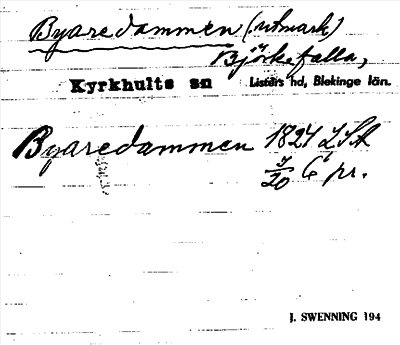 Byaredammen (utmark)
Björkefalla,
Kyrkhults sn Listers hd, Blekinge län.
Byaredammen 1824 LSA
3/20 6 pr.
J. SWENNING 194